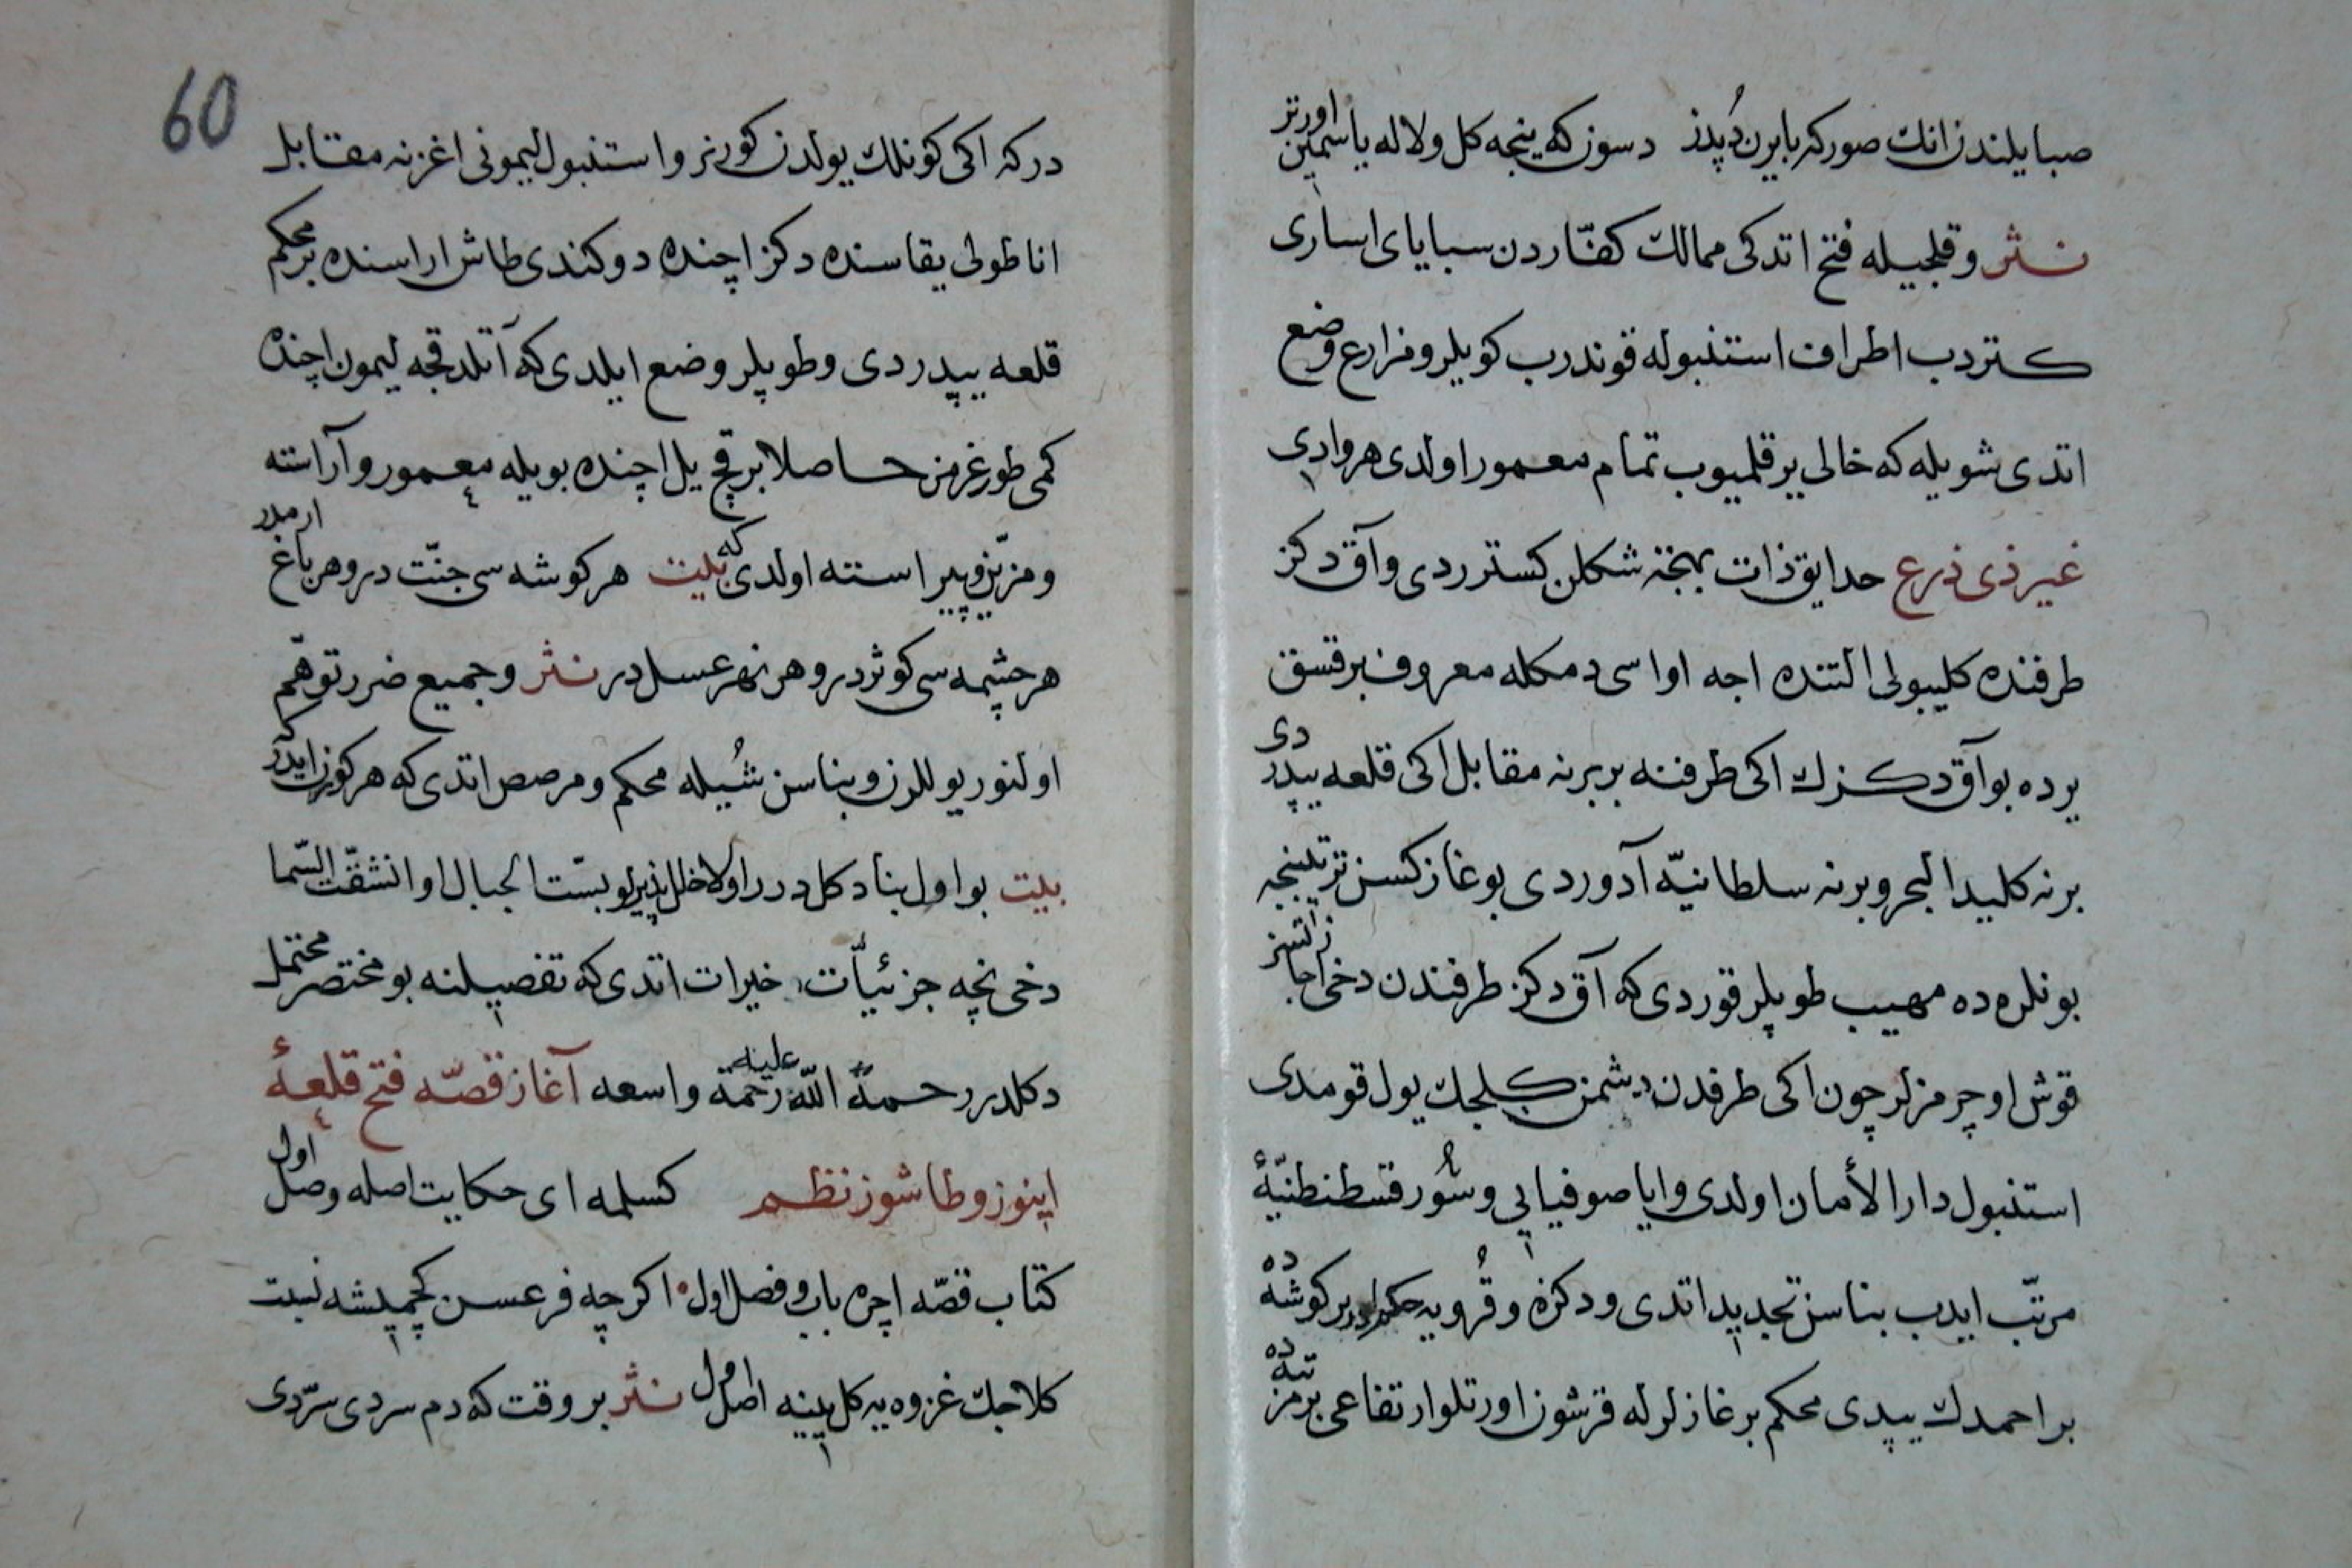 صبا یلندن انك صور که بایرن دپدز دسوزکه ینجه کل و لاله یاسمین اورتر
نثر و قلجیله فتح اتدکی ممالك کفّاردن سبایای اساری
کتردب اطراف استنبوله قوندرب کویلر و مزارع وضع
اتدی شویله که خالی یر قلمیوب تمام معمور اولدی هر وادی
غیر ذی ذرع حدایق ذات بهجة شکلن کستردی و آق دکز
طرفنده کلیبولی التنده اجه اواسی دمکله معروف بر قسق
یرده بو آق دکزك اکی طرفنه بربرنه مقابل اکی قلعه یپدردی
برنه کلید البحر و برنه سلطانیّه آد وردی بوغاز کسن تز تلینجه
بونلرده مهیب طوپلر قوردی که آق دکز طرفندن دخی اجازتسز
قوش اوچرمزلر چون اکی طرفدن دشمن کلجك یول قومدی
استنبول دار الأمان اولدی و ایا صوفیایی و سُور قسطنطنیّهٔ
مرتّب ایدب بناسن تجدید اتدی و دکزه و قُرویه حکم ایدر بر کوشه ده
بر احمدك یپدی محکم بر غاز لر له قرشون اورتلو ارتفاعی بر مرتبه ده
60
در که اکی کونلك یولدن کورنر و استنبول لیمونی اغزنه مقابل
اناطولی یقاسنده دکز اچنده دوکندی طاش اراسنده بر محکم
قلعه یپدردی و طوپلر وضع ایلدی که آتلدقجه لیمون اچنده
کمی طورغرمز حاصلا بر قچ یل اچنده بویله معمور و آراسته
و مزیّن و پیراسته اولدی که بیت هر کوشه سی جنّت در و هر باغ ارمدر
هر چشمه سی کوثردر و هر نهر عسل در نثر و جمیع ضرر توهّم
اولنور یوللرن و بناسن شُیله محکم و مرصص اتدی که هر کورن ایدر که
بیت بو اول بنا دکل در را ولا خلل پذیر لو بسّت الجبال او انشقّت السّما
دخی نچه جزئیاّت خیرات اتدی که تفصیلنه بو مختصر محتمل
دکلدر رحمةُ اللّه علیه رحمة واسعه آغاز قصّه فتح قلعهٔ
اینوز و طاشوز نظم کسلمه ای حکایت اصله وصل اول
کتاب قصّه اچره باب و فصل اول اکرچه فرعسن کچمیشه نسبت
کلاجك غزوه یه کل ینه اصل اول نثر بر وقت که دم سردی سرّدی